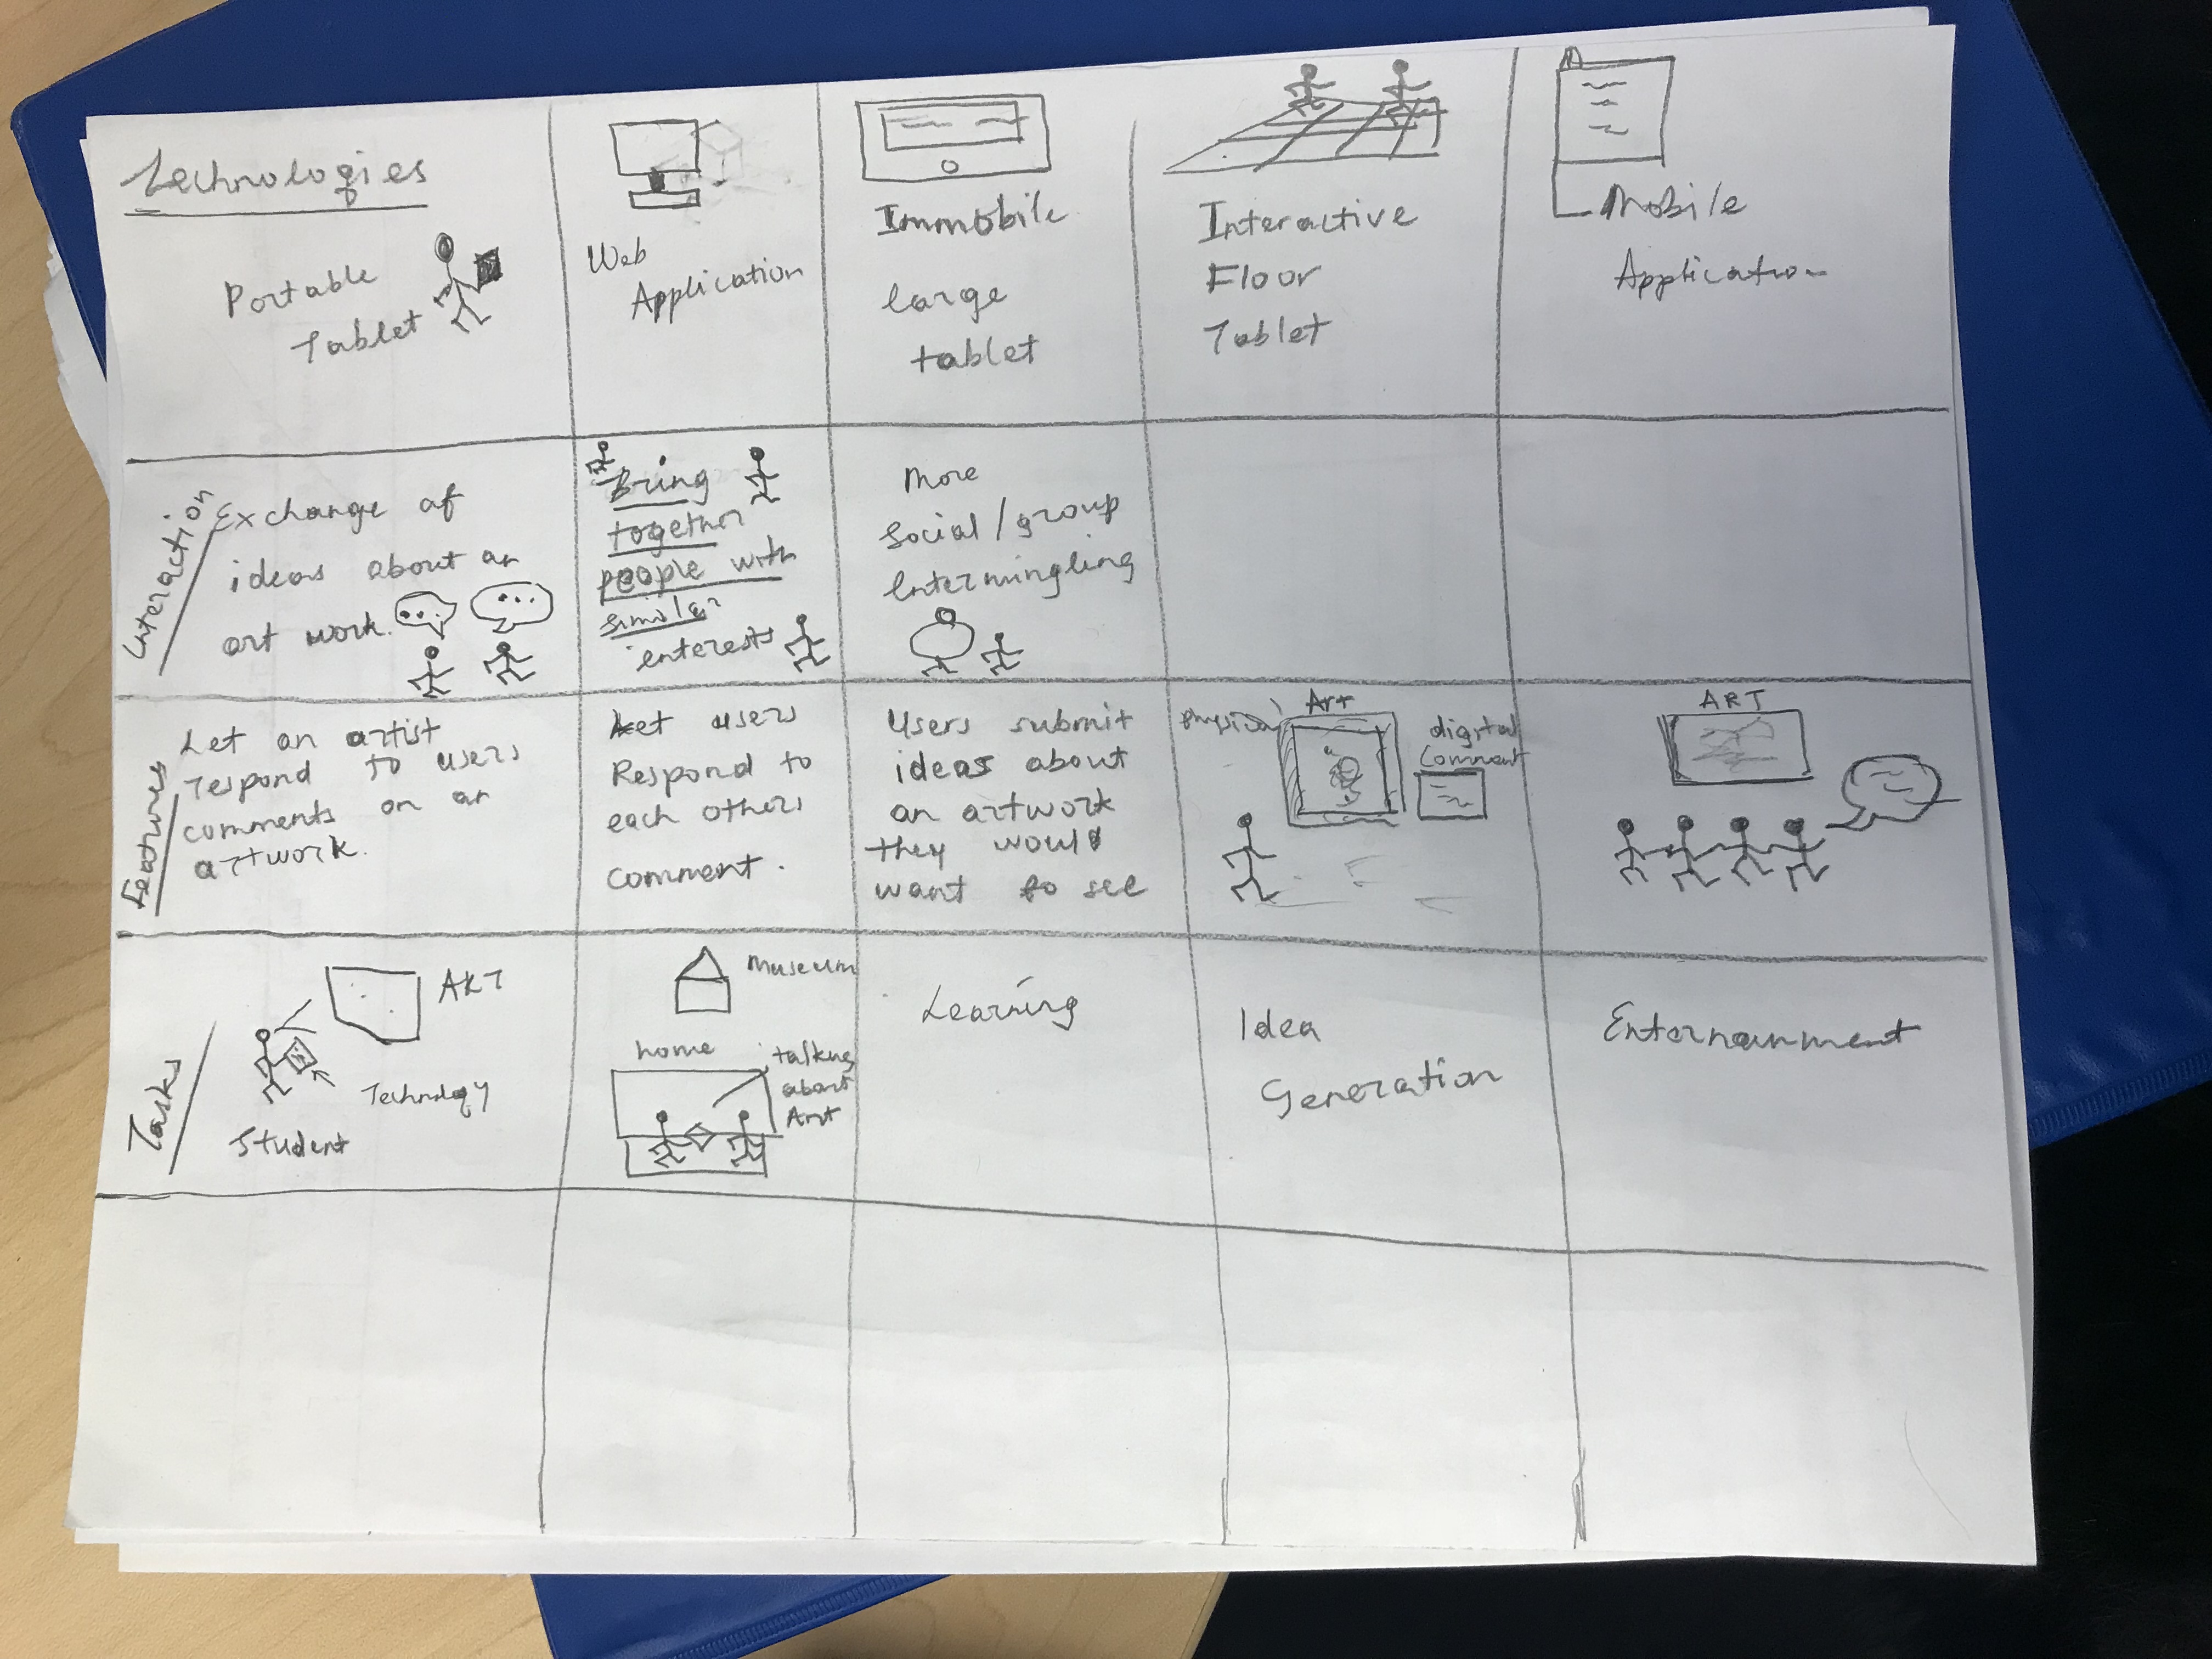 Technologies
Portable
Tablet
Web
Application
Immobile
large
tablet
Interactive
Floor
Tablet
Mobile
Application
Interaction
Exchange of
ideas about an
art work.
bring
together
people with
similar
interests
More
social/group
intermingling
Features
Let an artist
respond to users
comments on an
artwork.
Let users
Respond to
each others
comment.
Users submit
ideas about
an artwork
they would
want to see
Physical Art
digital
Comment
ART
Tasks
ART
Technology
Student
Museum
home
talking
about
Art
Learning
Idea
Generation
Enternainment